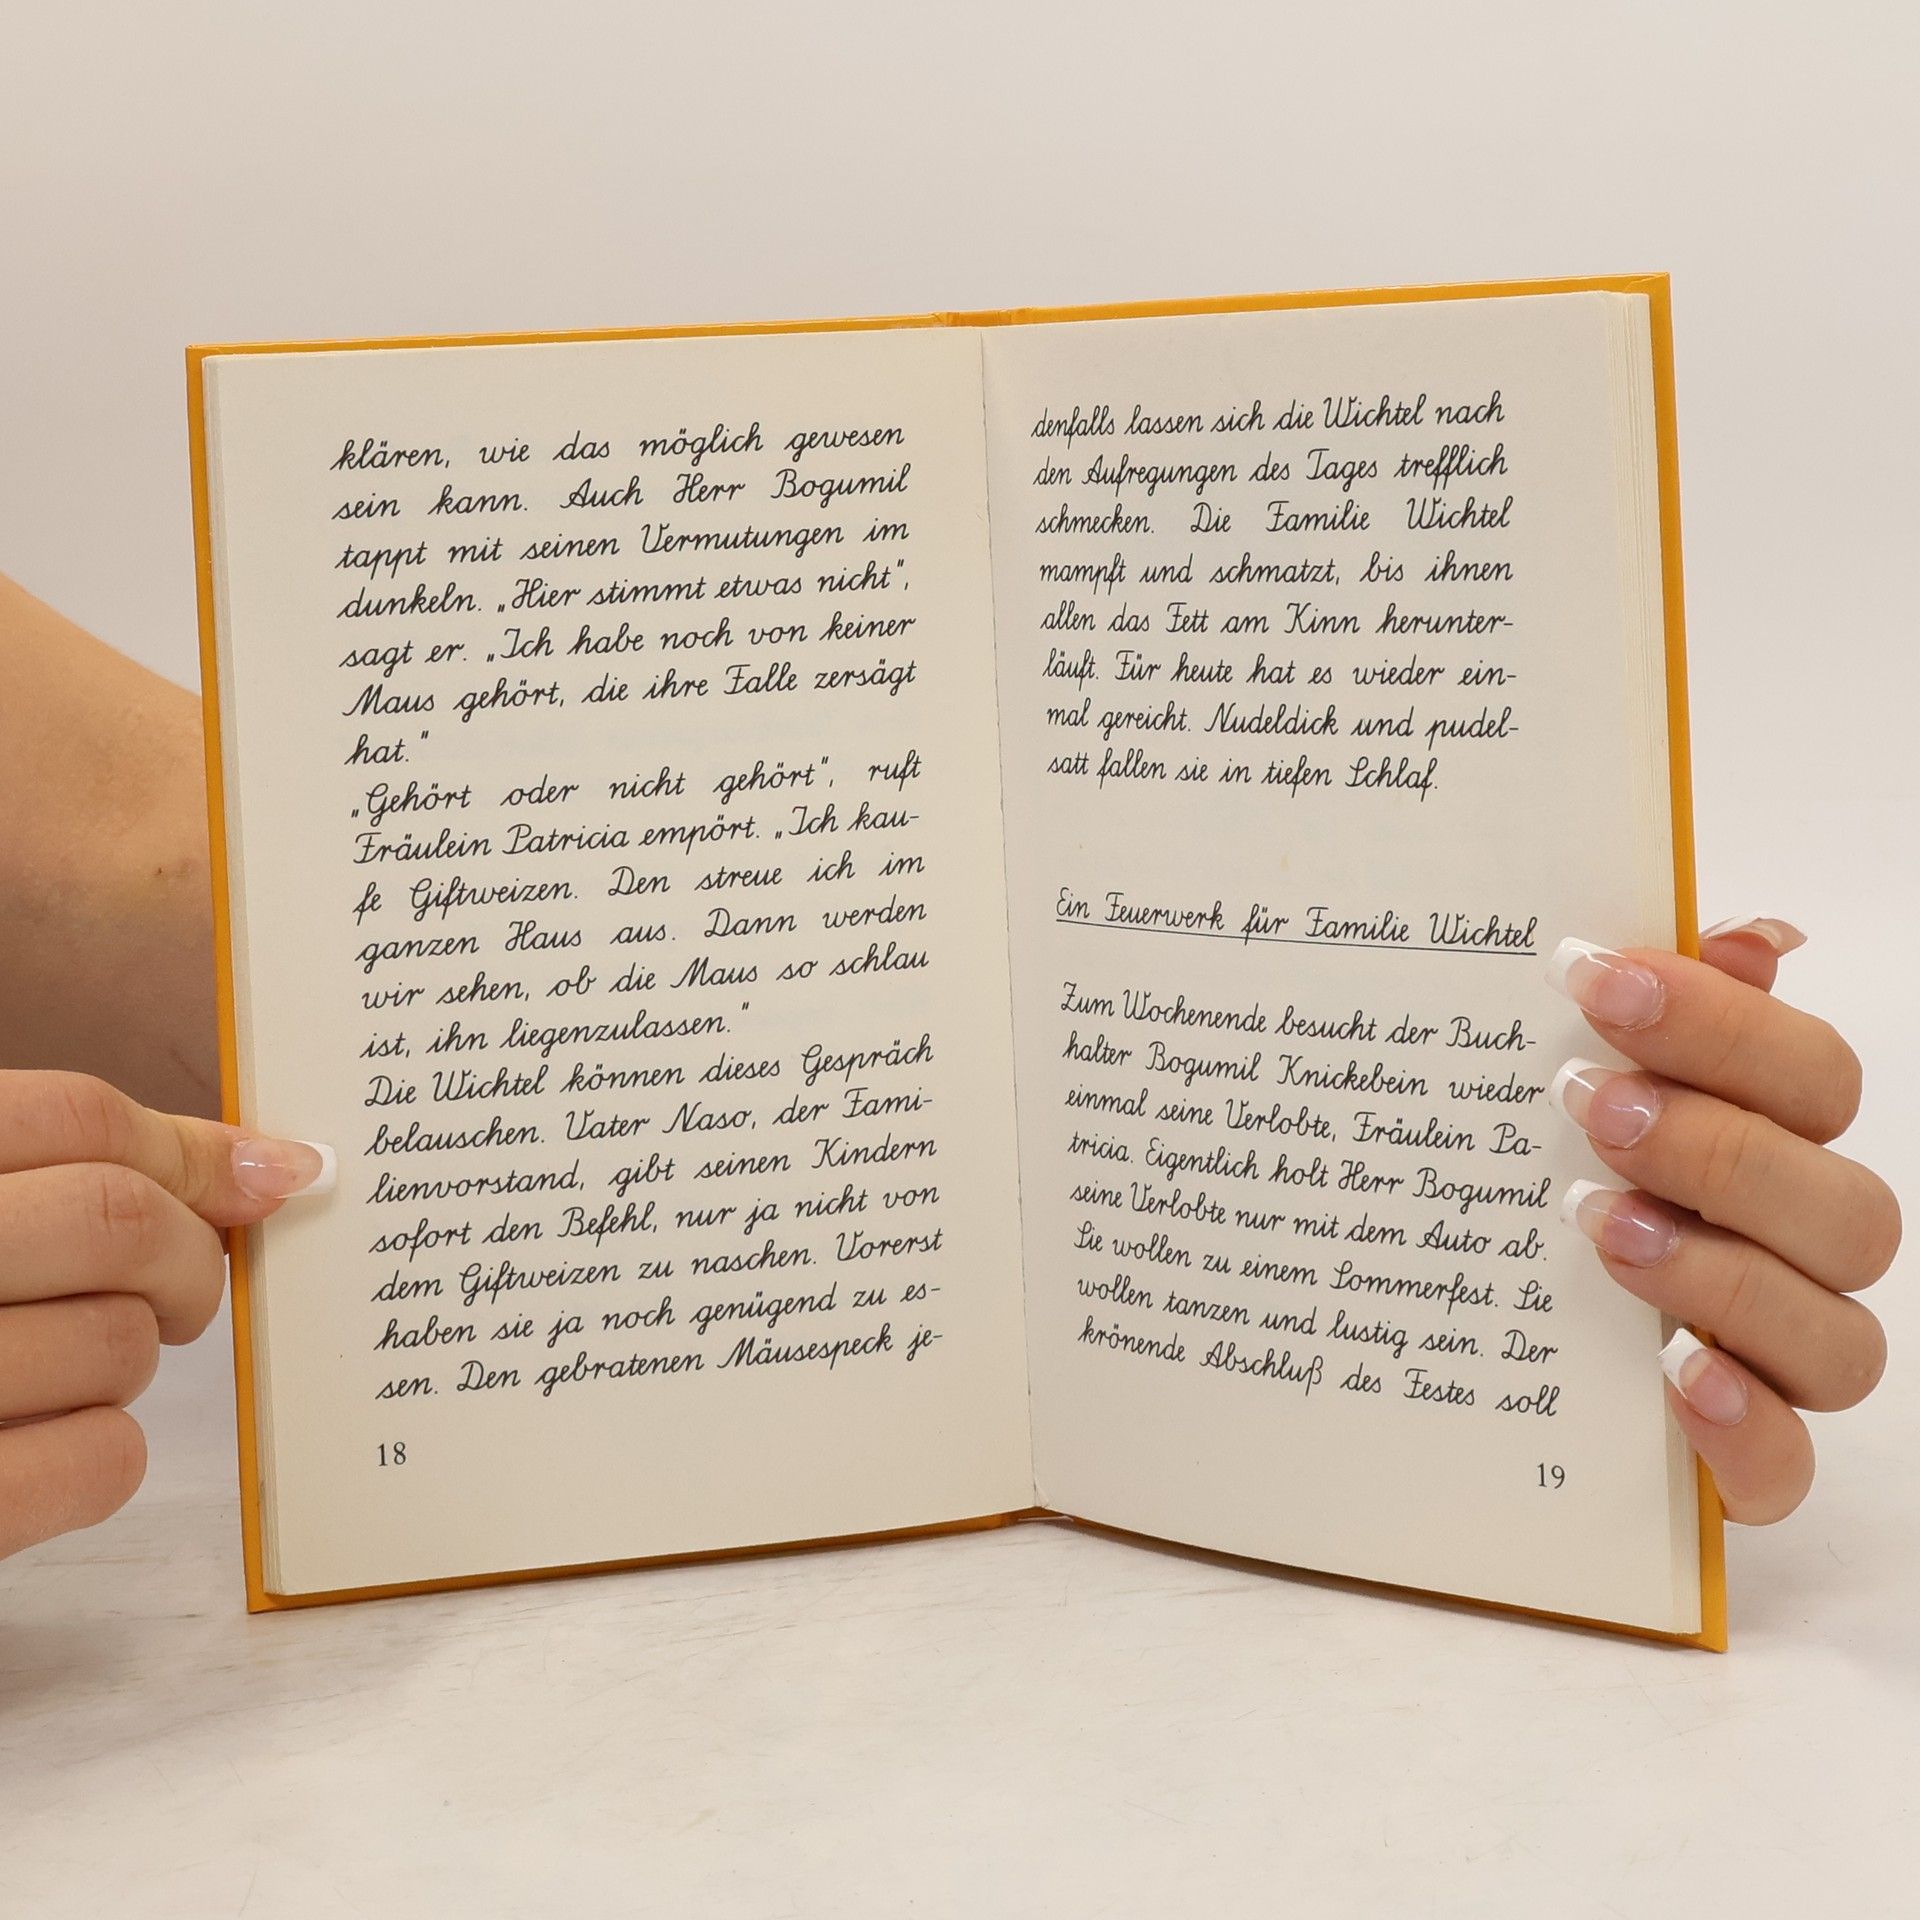 klären, wie das möglich gewesen
sein kann. Auch Herr Bogumil
tappt mit seinen Vermutungen im
dunkeln. „Hier stimmt etwas nicht",
sagt er. „Ich habe noch von keiner
Maus gehört, die ihre Falle zersägt
hat."
„Gehört oder nicht gehört", ruft
Fräulein Patricia empört. „Ich kau-
fe Giftweizen. Den streue ich im
ganzen Haus aus. Dann werden
wir sehen, ob die Maus so schlau
ist, ihn liegenzulassen."
Die Wichtel können dieses Gespräch
belauschen. Vater Naso, der Fami-
lienvorstand, gibt seinen Kindern
sofort den Befehl, nur ja nicht von
dem Giftweizen zu naschen. Vorerst
haben sie ja noch genügend zu es-
sen. Den gebratenen Mäusespeck je-
18
denfalls lassen sich die Wichtel nach
den Aufregungen des Tages trefflich
schmecken. Die Familie Wichtel
mampft und schmatzt, bis ihnen
allen das Fett am Kinn herunter-
läuft. Für heute hat es wieder ein-
mal gereicht. Nudeldick und pudel-
satt fallen sie in tiefen Schlaf.
Ein Feuerwerk für Familie Wichtel
Zum Wochenende besucht der Buch-
halter Bogumil Knickebein wieder
einmal seine Verlobte, Fräulein Pa-
tricia. Eigentlich holt Herr Bogumil
seine Verlobte nur mit dem Auto ab.
Sie wollen zu einem Sommerfest. Sie
wollen tanzen und lustig sein. Der
krönende Abschluß des Festes soll
19